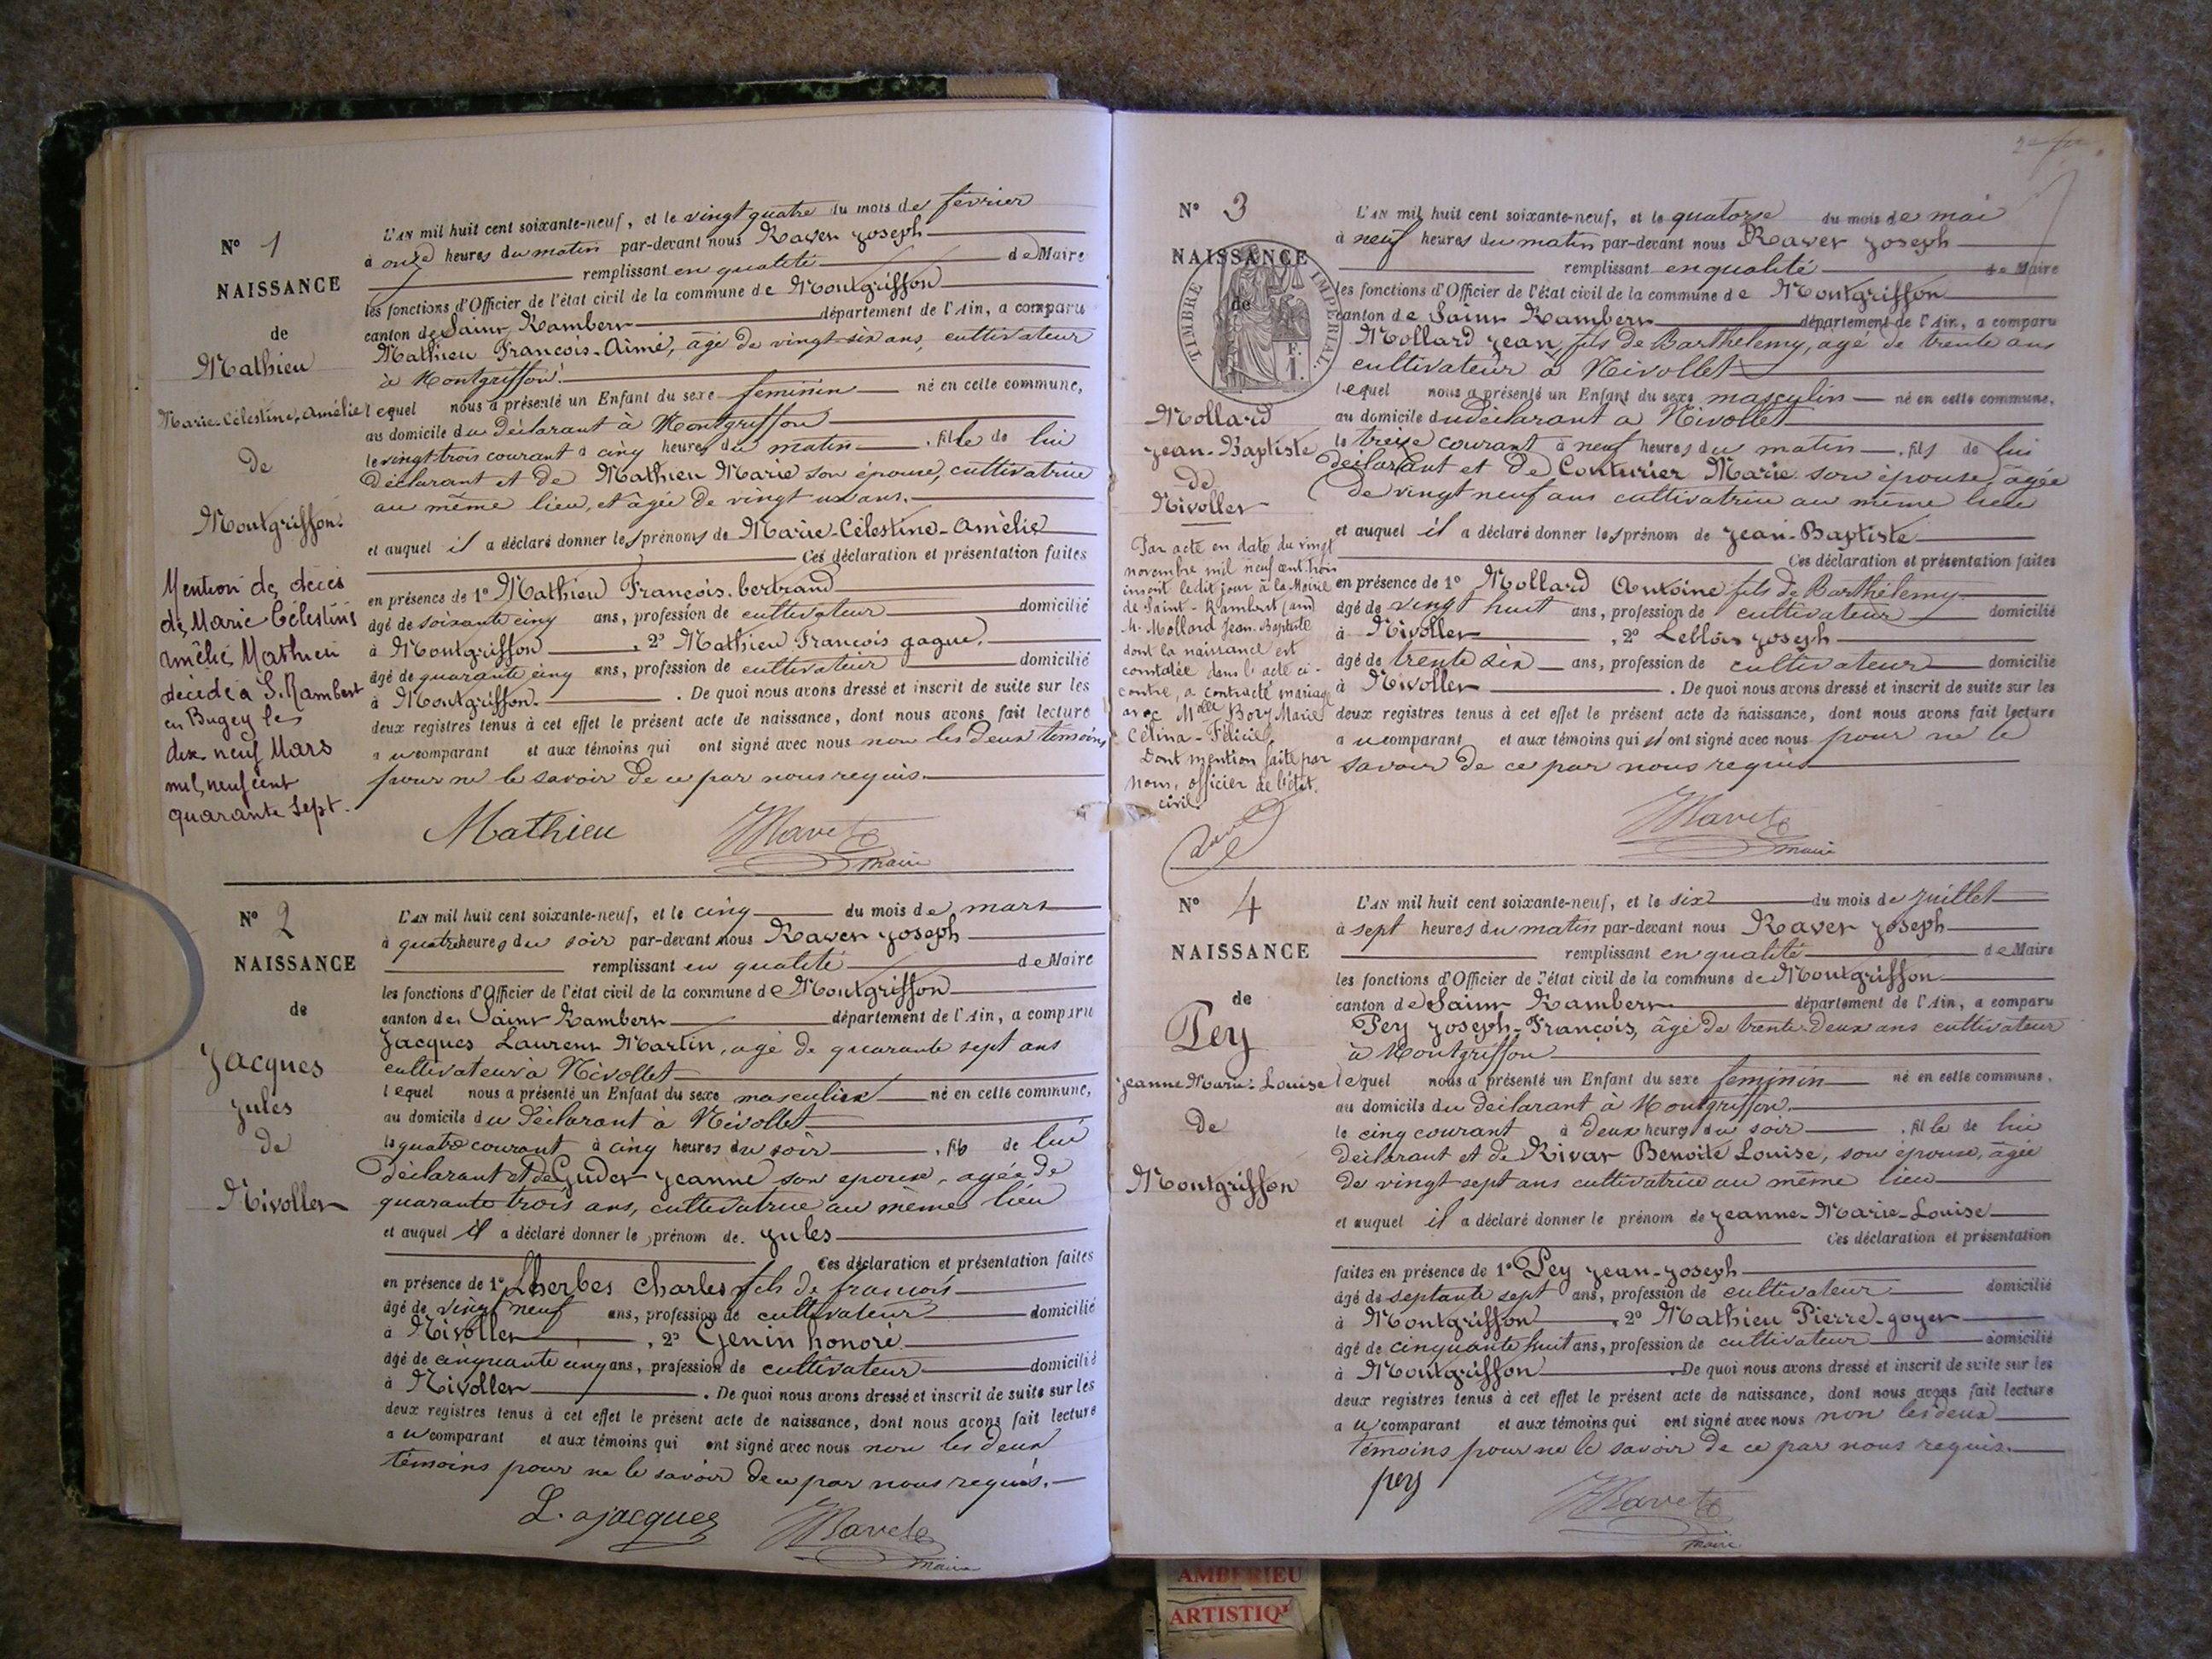 N° 1
NAISSANCE
de
Mathieu
Marie-Célestine, Amélie
de
Montgriffon.
Mention de décès
de Marie Célestine
Amélie Mathieu
décédé à S. Rambert
en Bugey le
dix neuf Mars
mil neuf cent
quarante sept.
L'AN mil huit cent soixante-neuf, et le vingt quatre du mois de février
à onze heures du matin par-devant nous Ravet Joseph
remplissant en qualité de Maire
les fonctions d'Officier de l'état civil de la commune de Montgriffon
canton de Saint Rambert département de l'Ain, a comparu
Mathieu François-Aimé, âgé de vingt-six ans, cultivateur
à Montgriffon.
lequel nous a présenté un Enfant du sexe feminin né en cette commune,
au domicile du déclarant à Montgriffon
le vingt-trois courant à cinq heures du matin, fille de lui
déclarant et de Mathieu Marie son épouse, cultivatrice
au même lieu, et âgée de vingt un ans.
et auquel il a déclaré donner les prénoms de Marie-Célestine-Amélie
Ces déclaration et présentation faites
en présence de 1° Mathieu François. bertrand
âgé de soixante cinq ans, profession de cultivateur domicilié
à Montgriffon, 2° Mathieu François gague.
âgé de quarante cinq ans, profession de cultivateur domicilié
à Montgriffon. De quoi nous avons dressé et inscrit de suite sur les
deux registres tenus à cet effet le présent acte de naissance, dont nous avons fait lecture
au comparant et aux témoins qui ont signé avec nous non les deux témoins
pour ne le savoir de ce par nous requis.
Mathieu Ravet
maire
N° 2
NAISSANCE
de
Jacques
Jules
de
Nivollet
L'AN mil huit cent soixante-neuf, et le cinq du mois de mars
à quatre heures du soir par-devant nous Ravet Joseph
remplissant en qualité de Maire
les fonctions d'Officier de l'état civil de la commune de Montgriffon
canton de Saint Rambert département de l'Ain, a comparu
Jacques Laurent Martin, agé de quarante sept ans
cultivateur à Nivollet
lequel nous a présenté un Enfant du sexe masculin né en cette commune,
au domicile du déclarant à Nivollet
le quatre courant à cinq heures du soir, fils de lui
déclarant et de Gudet Jeanne son epouse, agée de
quarante trois ans, cultivatrice au même lieu
et auquel il a déclaré donner le prénom de Jules
Ces déclaration et présentation faites
en présence de 1° Lherbes Charles fils de francois
âgé de vingt neuf ans, profession de cultivateur domicilié
à Nivollet, 2° Genin honoré.
âgé de cinquante cinq ans, profession de cultivateur domicilié
à Nivollet. De quoi nous avons dressé et inscrit de suite sur les
deux registres tenus à cet effet le présent acte de naissance, dont nous avons fait lecture
au comparant et aux témoins qui ont signé avec nous non les deux
témoins pour ne le savoir de ce par nous requis.
L. Jacques Ravet
maire
N° 3
NAISSANCE
de
TIMBRE IMPERIAL
F.
1.
Mollard
Jean-Baptiste
de
Nivollet
Par acte en date du vingt
novembre mil neuf cent trois
inscrit ledit jour à la Mairie
de Saint-Rambert (Ain)
M. Mollard Jean-Baptiste
dont la naissance est
constatée dans l'acte ci-
contre, a contracté mariage
avec Melle Bozy Marie
Célina-Félicie.
Dont mention faite par
nous, officier de l'état.
civil.
L'AN mil huit cent soixante-neuf, et le quatorze du mois de mai
à neuf heures du matin par-devant nous Ravet Joseph
remplissant en qualité de Maire
les fonctions d'Officier de l'état civil de la commune de Montgriffon
canton de Saint Rambert département de l'Ain, a comparu
Mollard Jean, fils de Barthelemy, agé de trente ans
cultivateur à Nivollet
lequel nous a présenté un Enfant du sexe masculin né en cette commune,
au domicile du déclarant a Nivollet
le treize courant à neuf heures du matin, fils de lui
déclarant et de Couturier Marie son épouse, âgée
de vingt neuf ans cultivatrice au même lieu
et auquel il a déclaré donner les prénom de Jean-Baptiste
Ces déclaration et présentation faites
en présence de 1° Mollard Antoine fils de Barthélemy
âgé de vingt huit ans, profession de cultivateur domicilié
à Nivollet, 2° Leblois Joseph
âgé de trente six ans, profession de cultivateur domicilié
à Nivollet. De quoi nous avons dressé et inscrit de suite sur les
deux registres tenus à cet effet le présent acte de naissance, dont nous avons fait lecture
au comparant et aux témoins qui n'ont signé avec nous pour ne le
savoir de ce par nous requis
Ravet
maire
N° 4
NAISSANCE
de
Pey
Jeanne Marie-Louise
de
Montgriffon
L'AN mil huit cent soixante-neuf, et le six du mois de juillet
à sept heures du matin par-devant nous Ravet Joseph
remplissant en qualité de Maire
les fonctions d'Officier de l'état civil de la commune de Montgriffon
canton de Saint Rambert département de l'Ain, a comparu
Pey Joseph-François, âgé de trente deux ans cultivateur
à Montgriffon
lequel nous a présenté un Enfant du sexe feminin né en cette commune,
au domicile du déclarant à Montgriffon.
le cinq courant à deux heures du soir, fille de lui
déclarant et de Rivat Benoite Louise, son épouse, âgée
de vingt sept ans cultivatrice au même lieu
et auquel il a déclaré donner le prénom de Jeanne-Marie-Louise
Ces déclaration et présentation
faites en présence de 1° Pey Jean-Joseph
âgé de septante sept ans, profession de cultivateur domicilié
à Montgriffon, 2° Mathieu Pierre-goyet
âgé de cinquante huit ans, profession de cultivateur domicilié
à Montgriffon. De quoi nous avons dressé et inscrit de suite sur les
deux registres tenus à cet effet le présent acte de naissance, dont nous avons fait lecture
au comparant et aux témoins qui ont signé avec nous non les deux
témoins pour ne le savoir de ce par nous requis.
pey Ravet
maire
AMBERIEU
ARTISTIQ